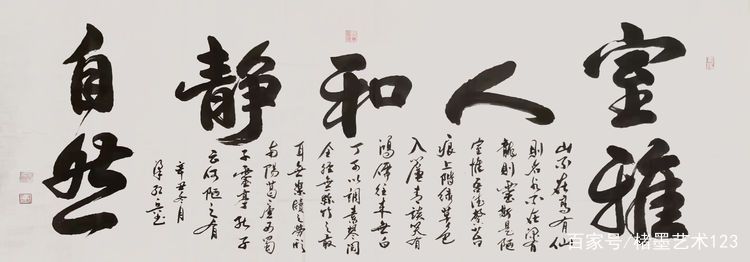 室雅
人
和
静
自然
山不在高有仙
则名水不在深有
龍则靈斯是陋
室惟吾德馨苔
痕上階绿草色
入簾青谈笑有
鴻儒往来無白
丁可以调素琴阅
金经無丝竹之乱
耳無案牍之劳形
南陽諸葛廬西蜀
子雲亭孔子
云何陋之有
辛丑冬月
百家号/楮墨艺术123